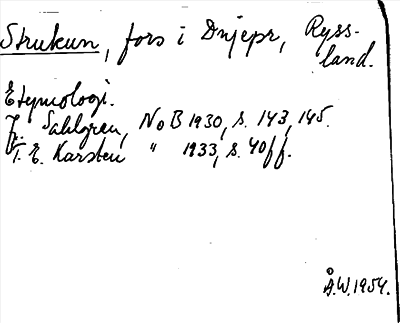 Strukun, fors i Dnjepr, Ryss-
land.
Etymologi.
J. Sahlgren, NoB 1930, s. 143, 145.
T. E. Karsten " 1933, s. 40ff.
Å.W. 1954.